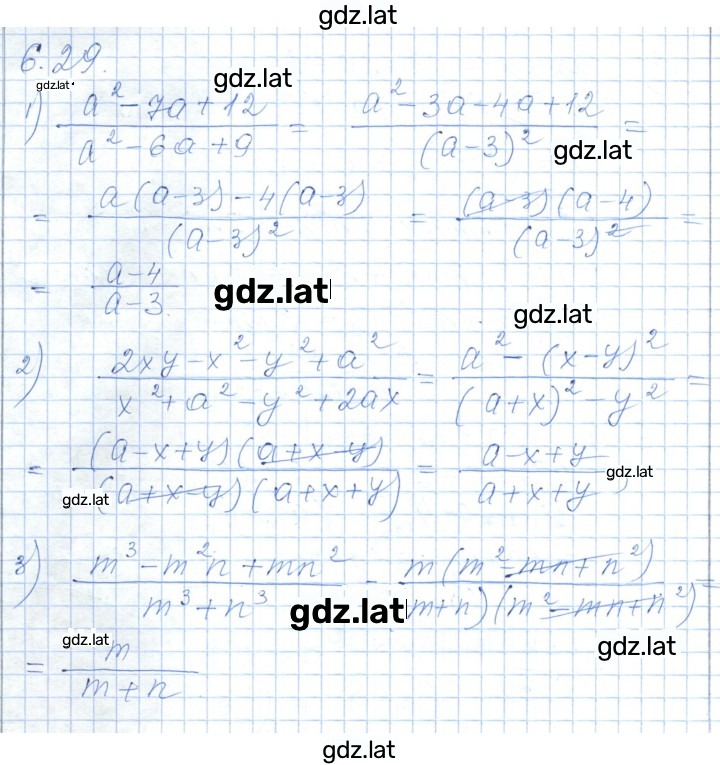 gdz.lat
6.29.
gdz.lat
gdz.lat
1) (a² - 7a + 12)/(a² - 6a + 9) = (a² - 3a - 4a + 12)/(a-3)² =
gdz.lat
= (a(a-3) - 4(a-3))/(a-3)² = ((a-3)(a-4))/(a-3)² =
= (a-4)/(a-3)
gdz.lat
gdz.lat
2) (2xy - x² - y² + a²)/(x² + a² - y² + 2ax) = (a² - (x-y)²)/((a+x)² - y²) =
= ((a-x+y)(a+x-y))/((a+x-y)(a+x+y)) = (a-x+y)/(a+x+y)
gdz.lat
gdz.lat
3) (m³ - m²n + mn²)/(m³ + n³) = (m(m² - mn + n²))/((m+n)(m² - mn + n²)) =
gdz.lat
gdz.lat
gdz.lat
= m/(m+n)
gdz.lat